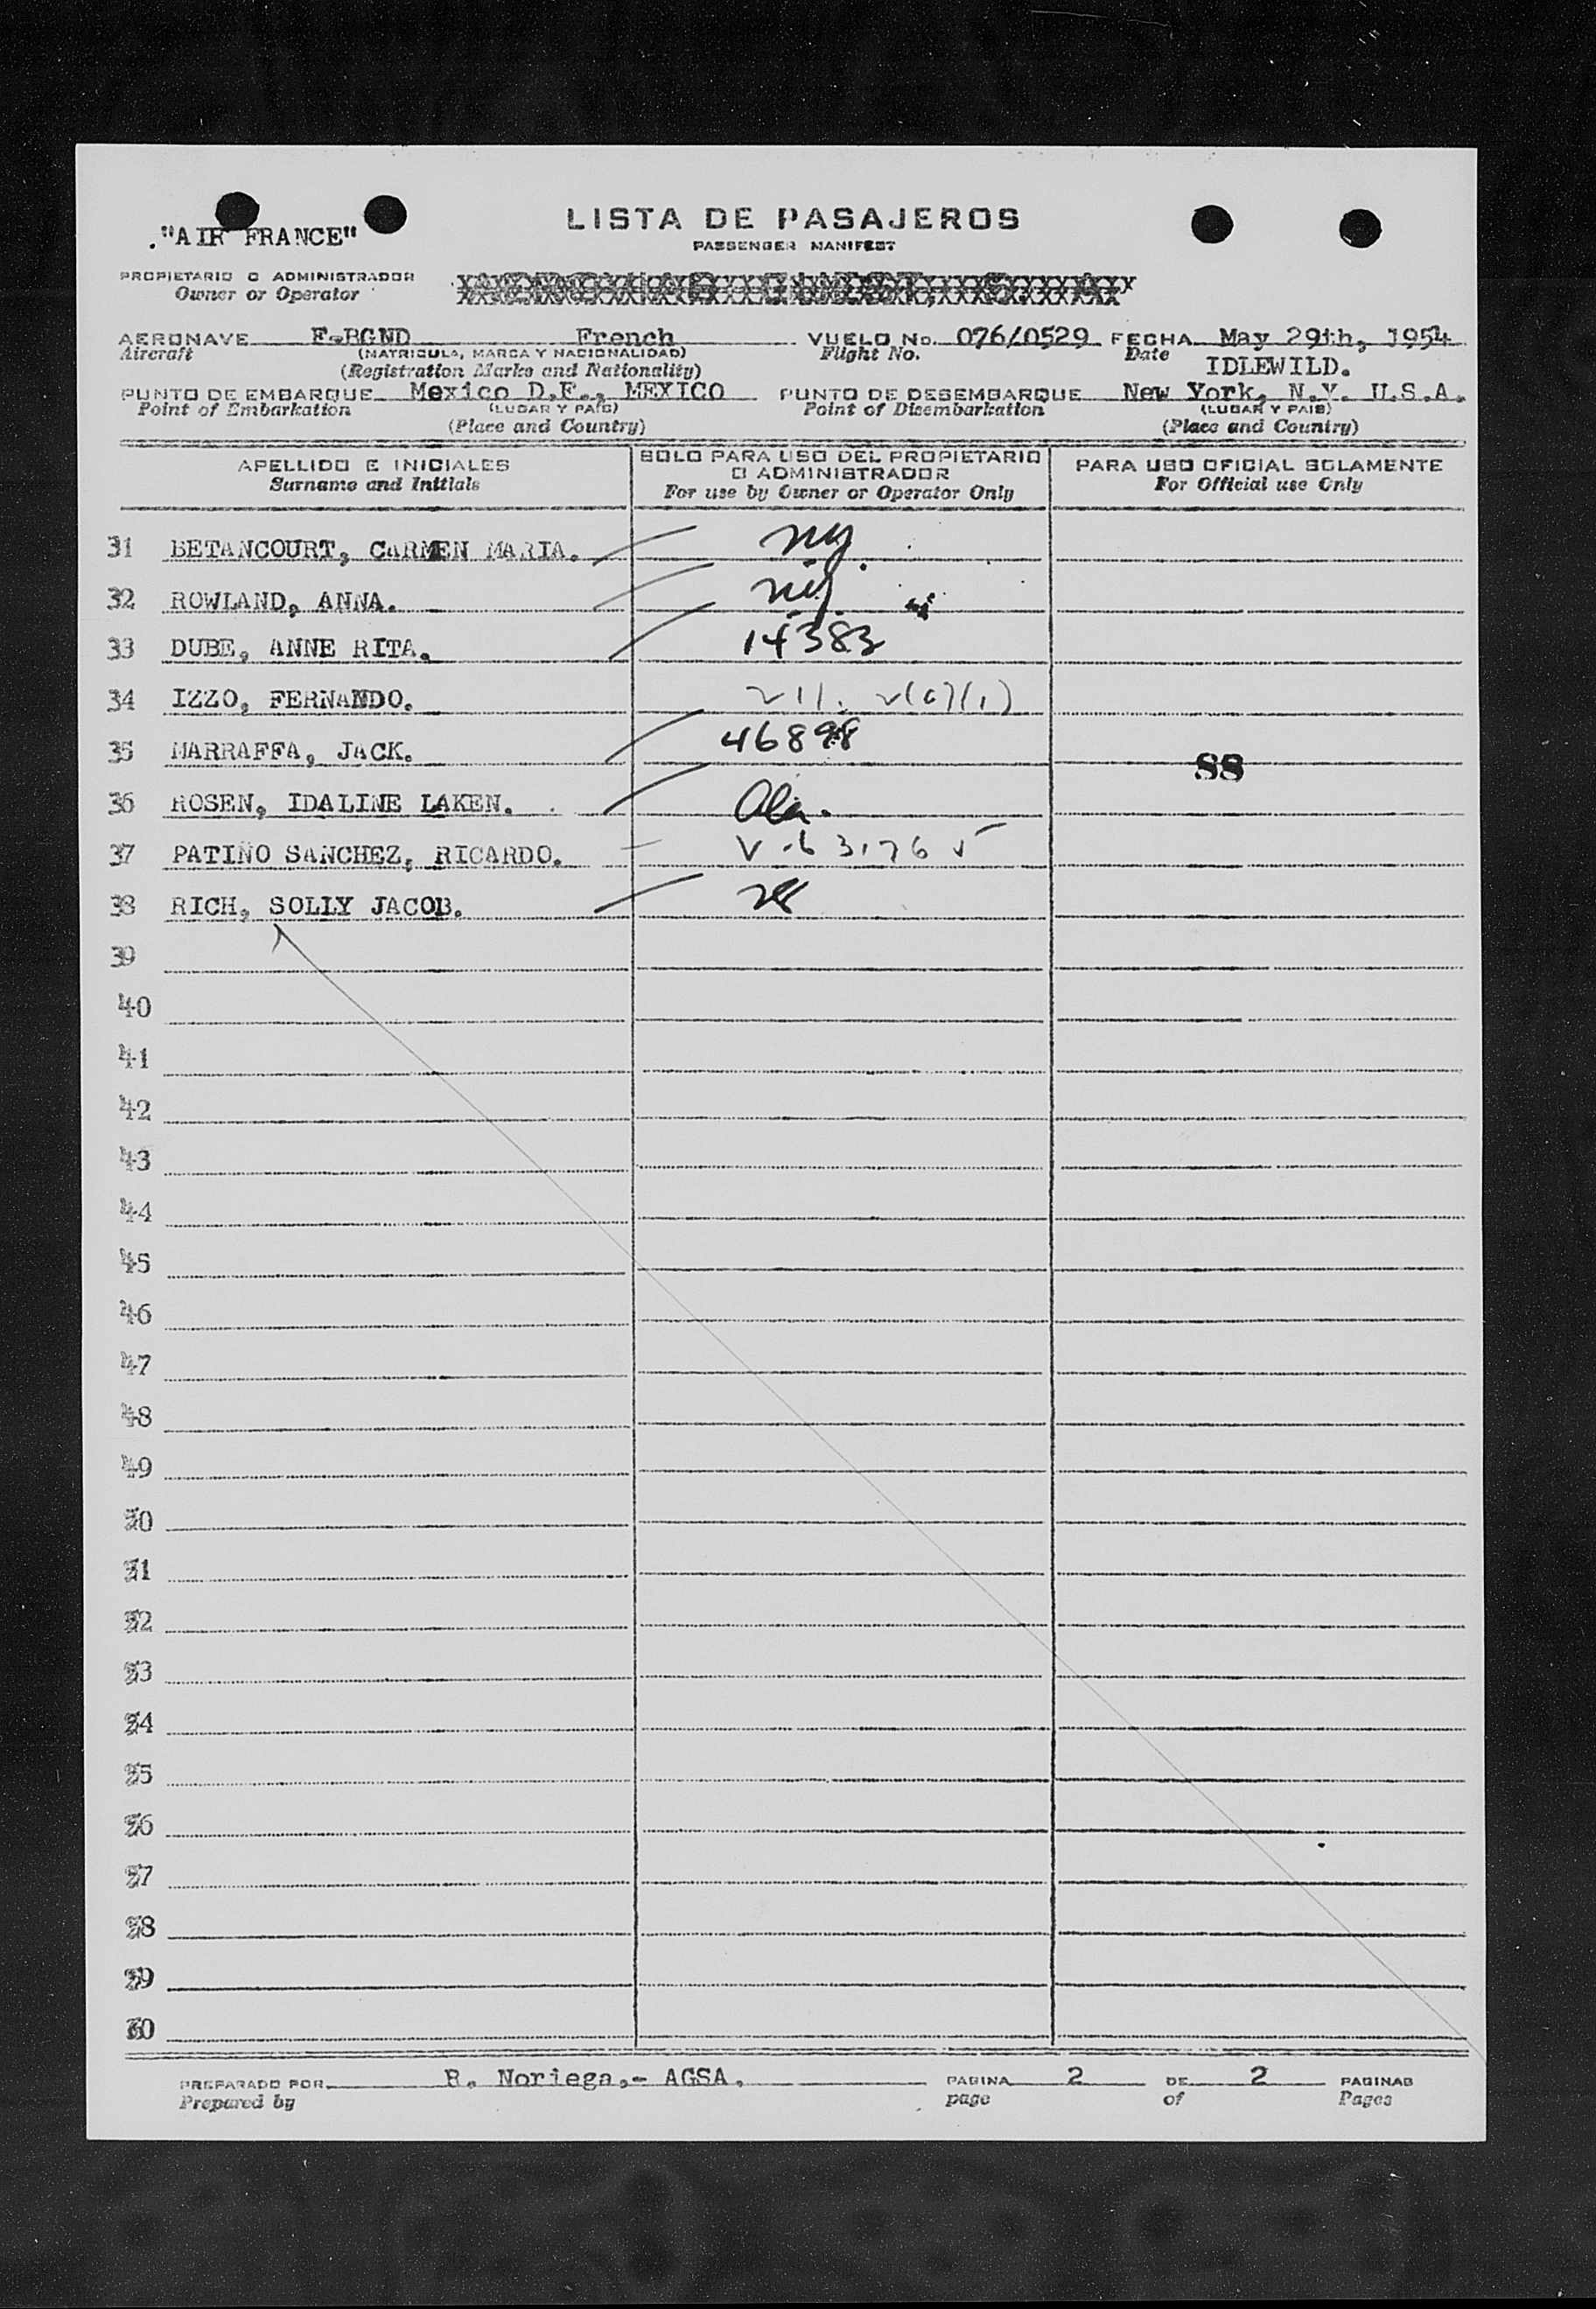 "AIR FRANCE"
LISTA DE PASAJEROS
PASSENGER MANIFEST
PROPIETARIO O ADMINISTRADOR
Owner or Operator
AERONAVE F-BGND French VUELO No. 076/0529 FECHA May 29th, 1954
Aircraft (MATRICULA, MARCA Y NACIONALIDAD) Flight No. Date
(Registration Marks and Nationality) IDLEWILD.
PUNTO DE EMBARQUE Mexico D.F., MEXICO PUNTO DE DESEMBARQUE New York, N.Y. U.S.A.
Point of Embarkation (LUGAR Y PAIS) Point of Disembarkation (LUGAR Y PAIS)
(Place and Country) (Place and Country)
APELLIDO E INICIALES SOLO PARA USO DEL PROPIETARIO O ADMINISTRADOR PARA USO OFICIAL SOLAMENTE
Surname and Initials For use by Owner or Operator Only For Official use Only
31 BETANCOURT, CARMEN MARIA. ny
32 ROWLAND, ANNA. nij.
33 DUBE, ANNE RITA. 14383
34 IZZO, FERNANDO.
35 MARRAFFA, JACK. 46898
88
36 ROSEN, IDALINE LAKEN. Ala.
37 PATIÑO SANCHEZ, RICARDO.
38 RICH, SOLLY JACOB. 28
39
40
41
42
43
44
45
46
47
48
49
50
51
52
53
54
55
56
57
58
59
60
PREPARADO POR R. Noriega,- AGSA. PAGINA 2 DE 2 PAGINAS
Prepared by page of Pages